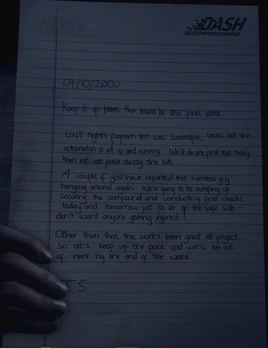 DASH
DECOMMISSIONING
04/10/2000
Keep it up team. This should be the final week.
Last night's program test was successful. Looks like the
automation is all up and running. We'll do one final test today,
then we can pack away the kit.
A couple of you have reported that homeless guy
hanging around again. We're going to be bumping up
securing the compound and conducting final checks
today and tomorrow just to be on the safe side -
don't want anyone getting injured!
Other than that, the work's been great all project,
so let's keep up the pace and we'll be out
of here by the end of the week.
T.S.